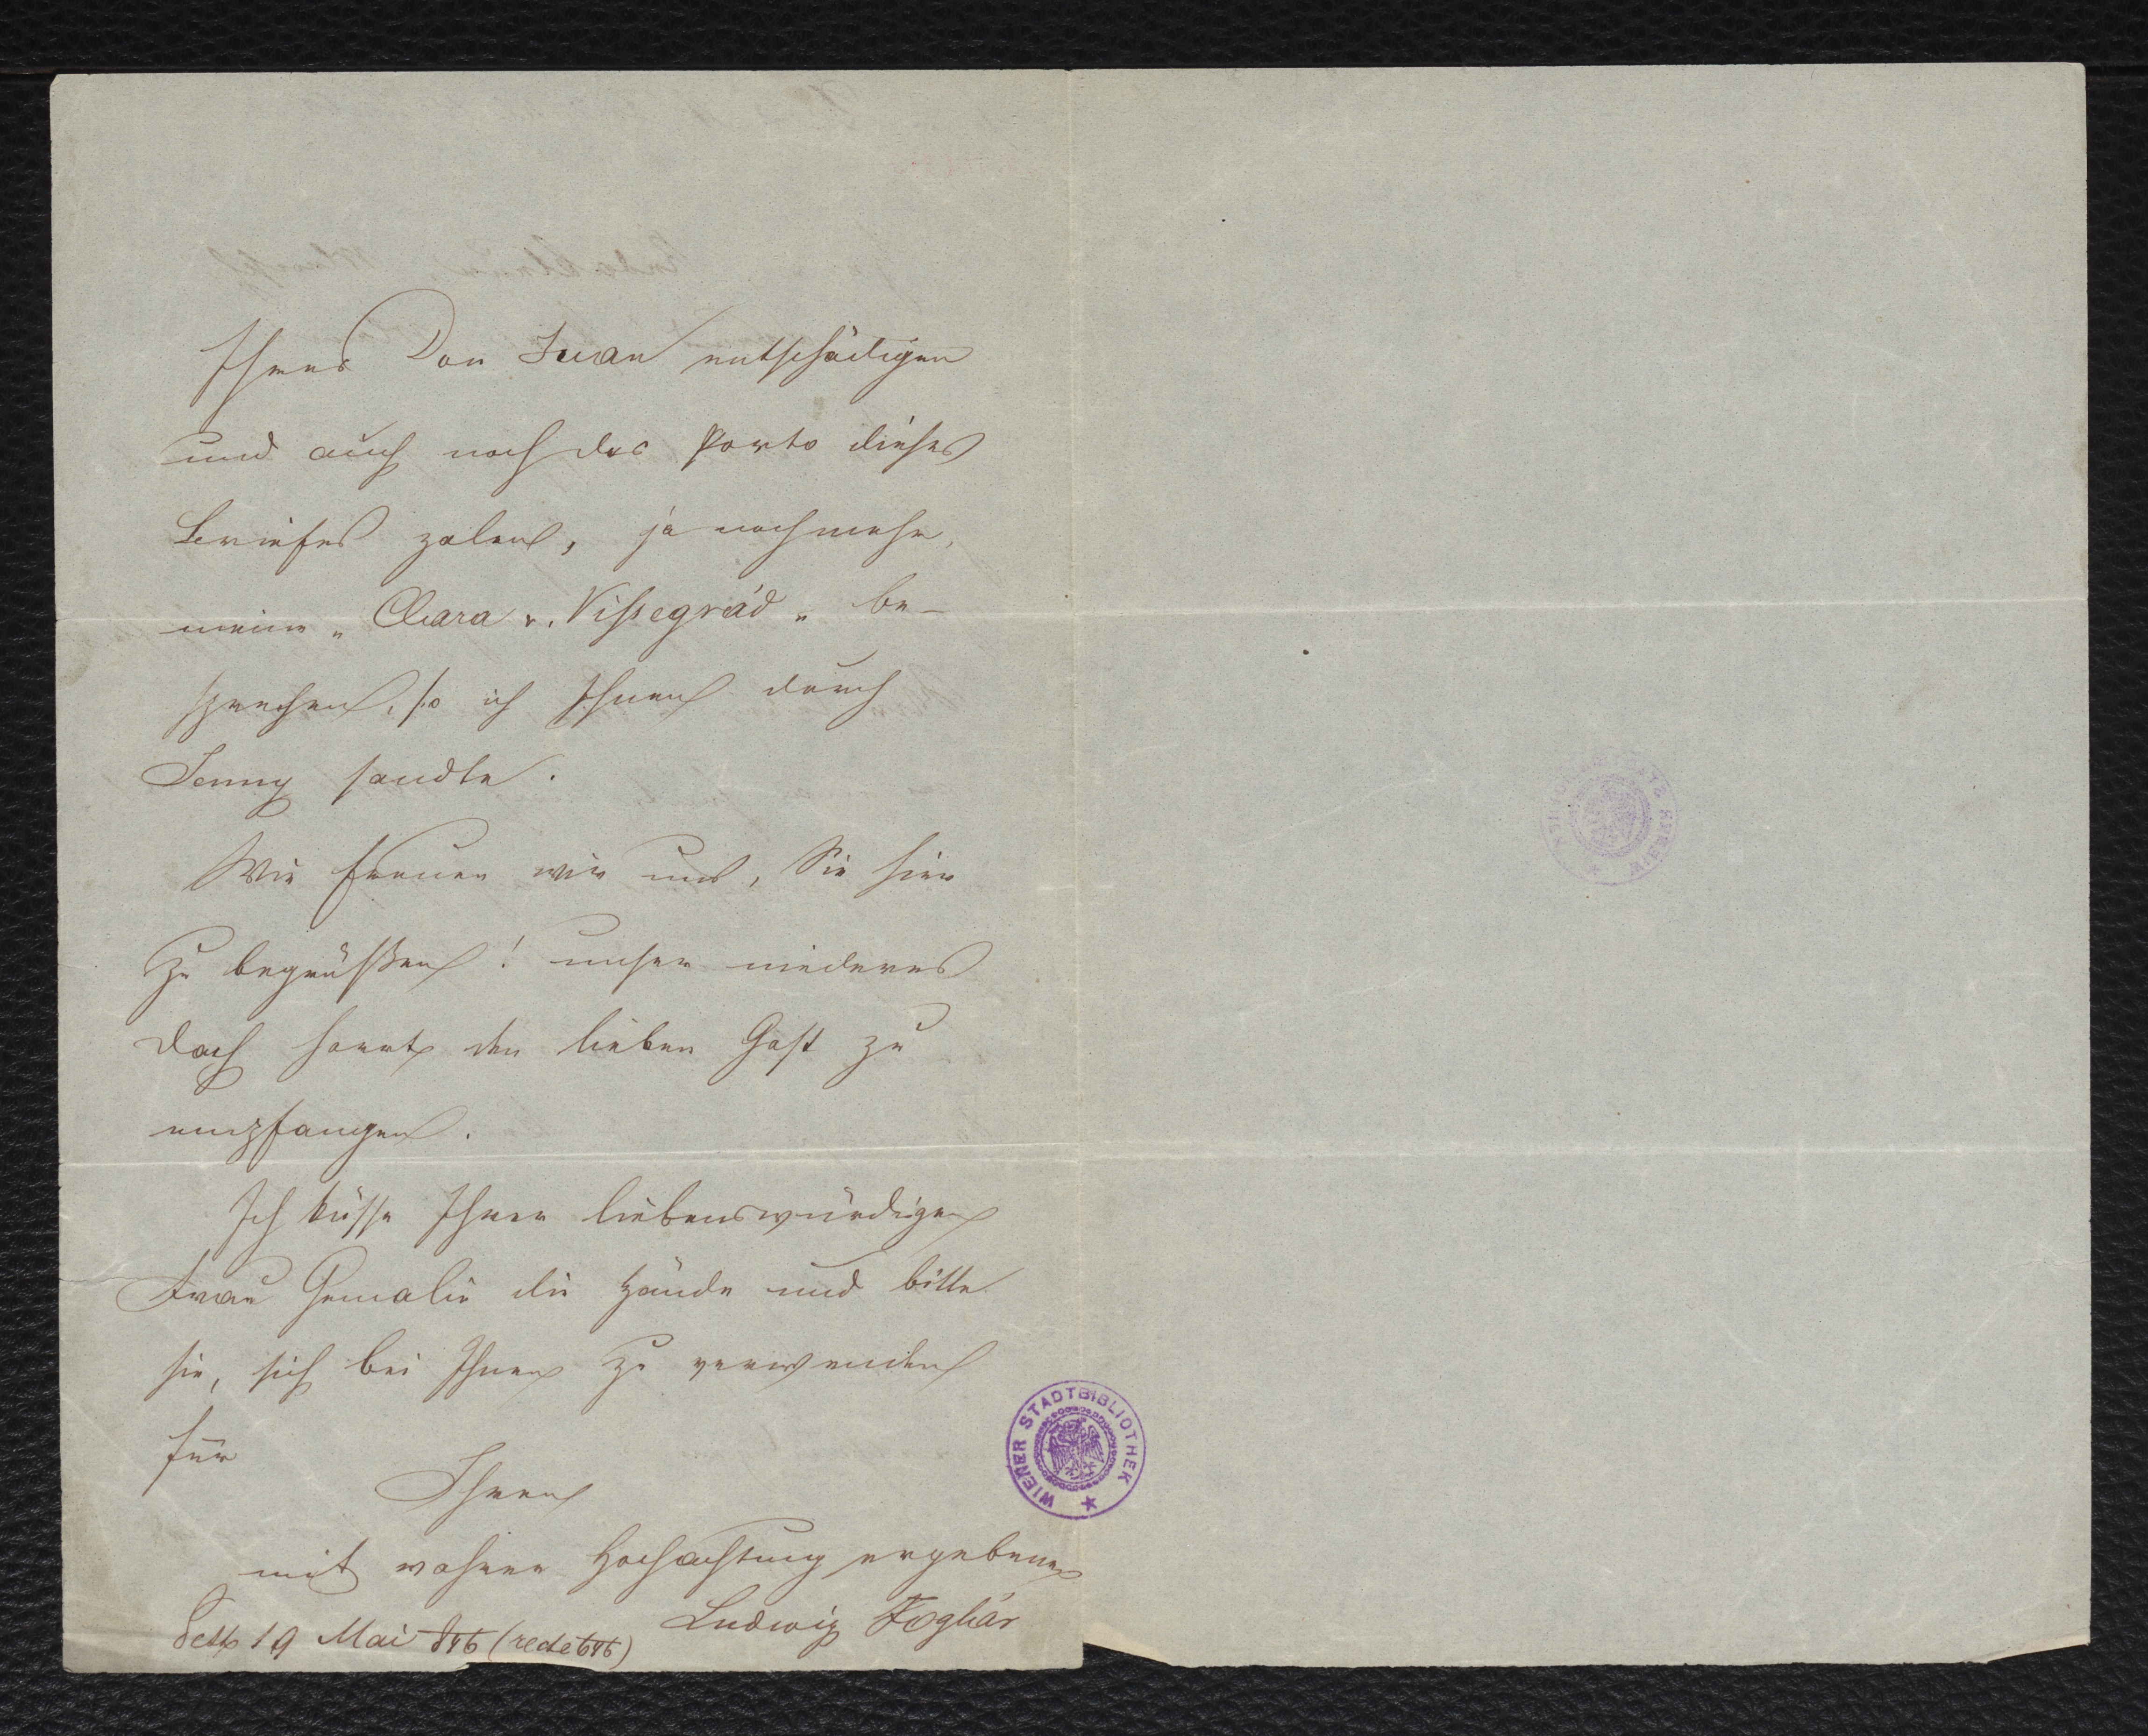 Ihres Don Juan entschädigen
und auch noch das Porto dieses
Briefes zalen, ja noch mehr,
meine „Clara v. Vissegrád„ be-
sprechen, so ich Ihnen durch
Jenny sandte.
Wie freuen wir uns, Sie hier
zu begrüßen! unser niederes
Dach harrt den lieben Gast zu
empfangen.
Ich küsse Ihrer liebenswürdigen
Frau Gemalin die Hände und bitte
sie, sich bei Ihnen zu verwenden
für
Ihren
mit wahrer Hochachtung ergebenen
Ludwig Foglár
Pesth 19 Mai 846 (recte 646)
WIENER STADTBIBLIOTHEK